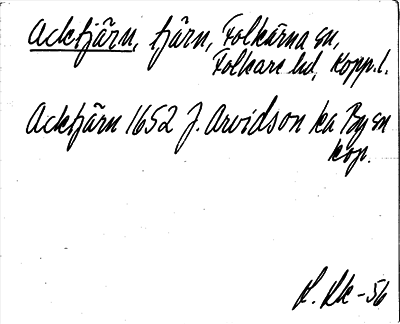 Acktjärn, tjärn, Folkärna sn,
Folkare hd, Kopp. l.
Acktjärn 1652 J. Arvidson ka By sn
kop.